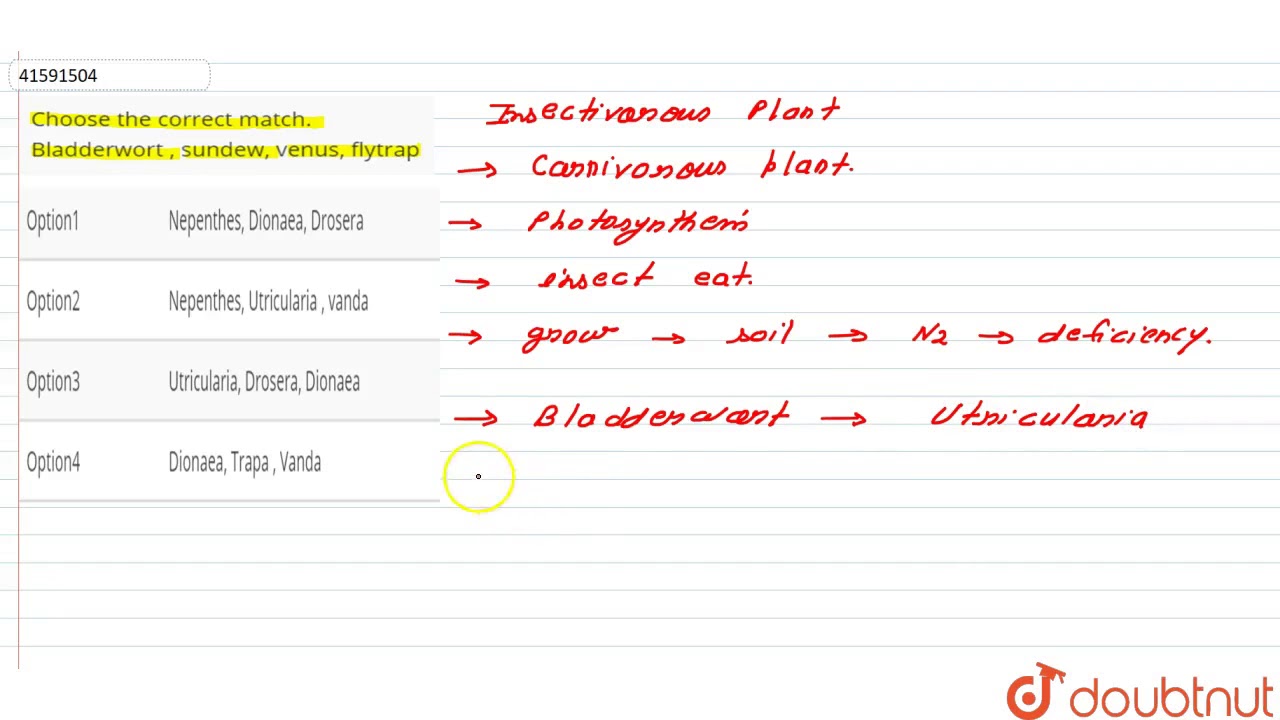 41591504
Choose the correct match.
Bladderwort , sundew, venus, flytrap
Option1 Nepenthes, Dionaea, Drosera
Option2 Nepenthes, Utricularia , vanda
Option3 Utricularia, Drosera, Dionaea
Option4 Dionaea, Trapa , Vanda
Insectivorous Plant
→ Carnivorous plant.
→ Photosynthesis
→ insect eat.
→ grow → soil → N2 → deficiency.
→ Bladderwort → Utricularia
doubtnut